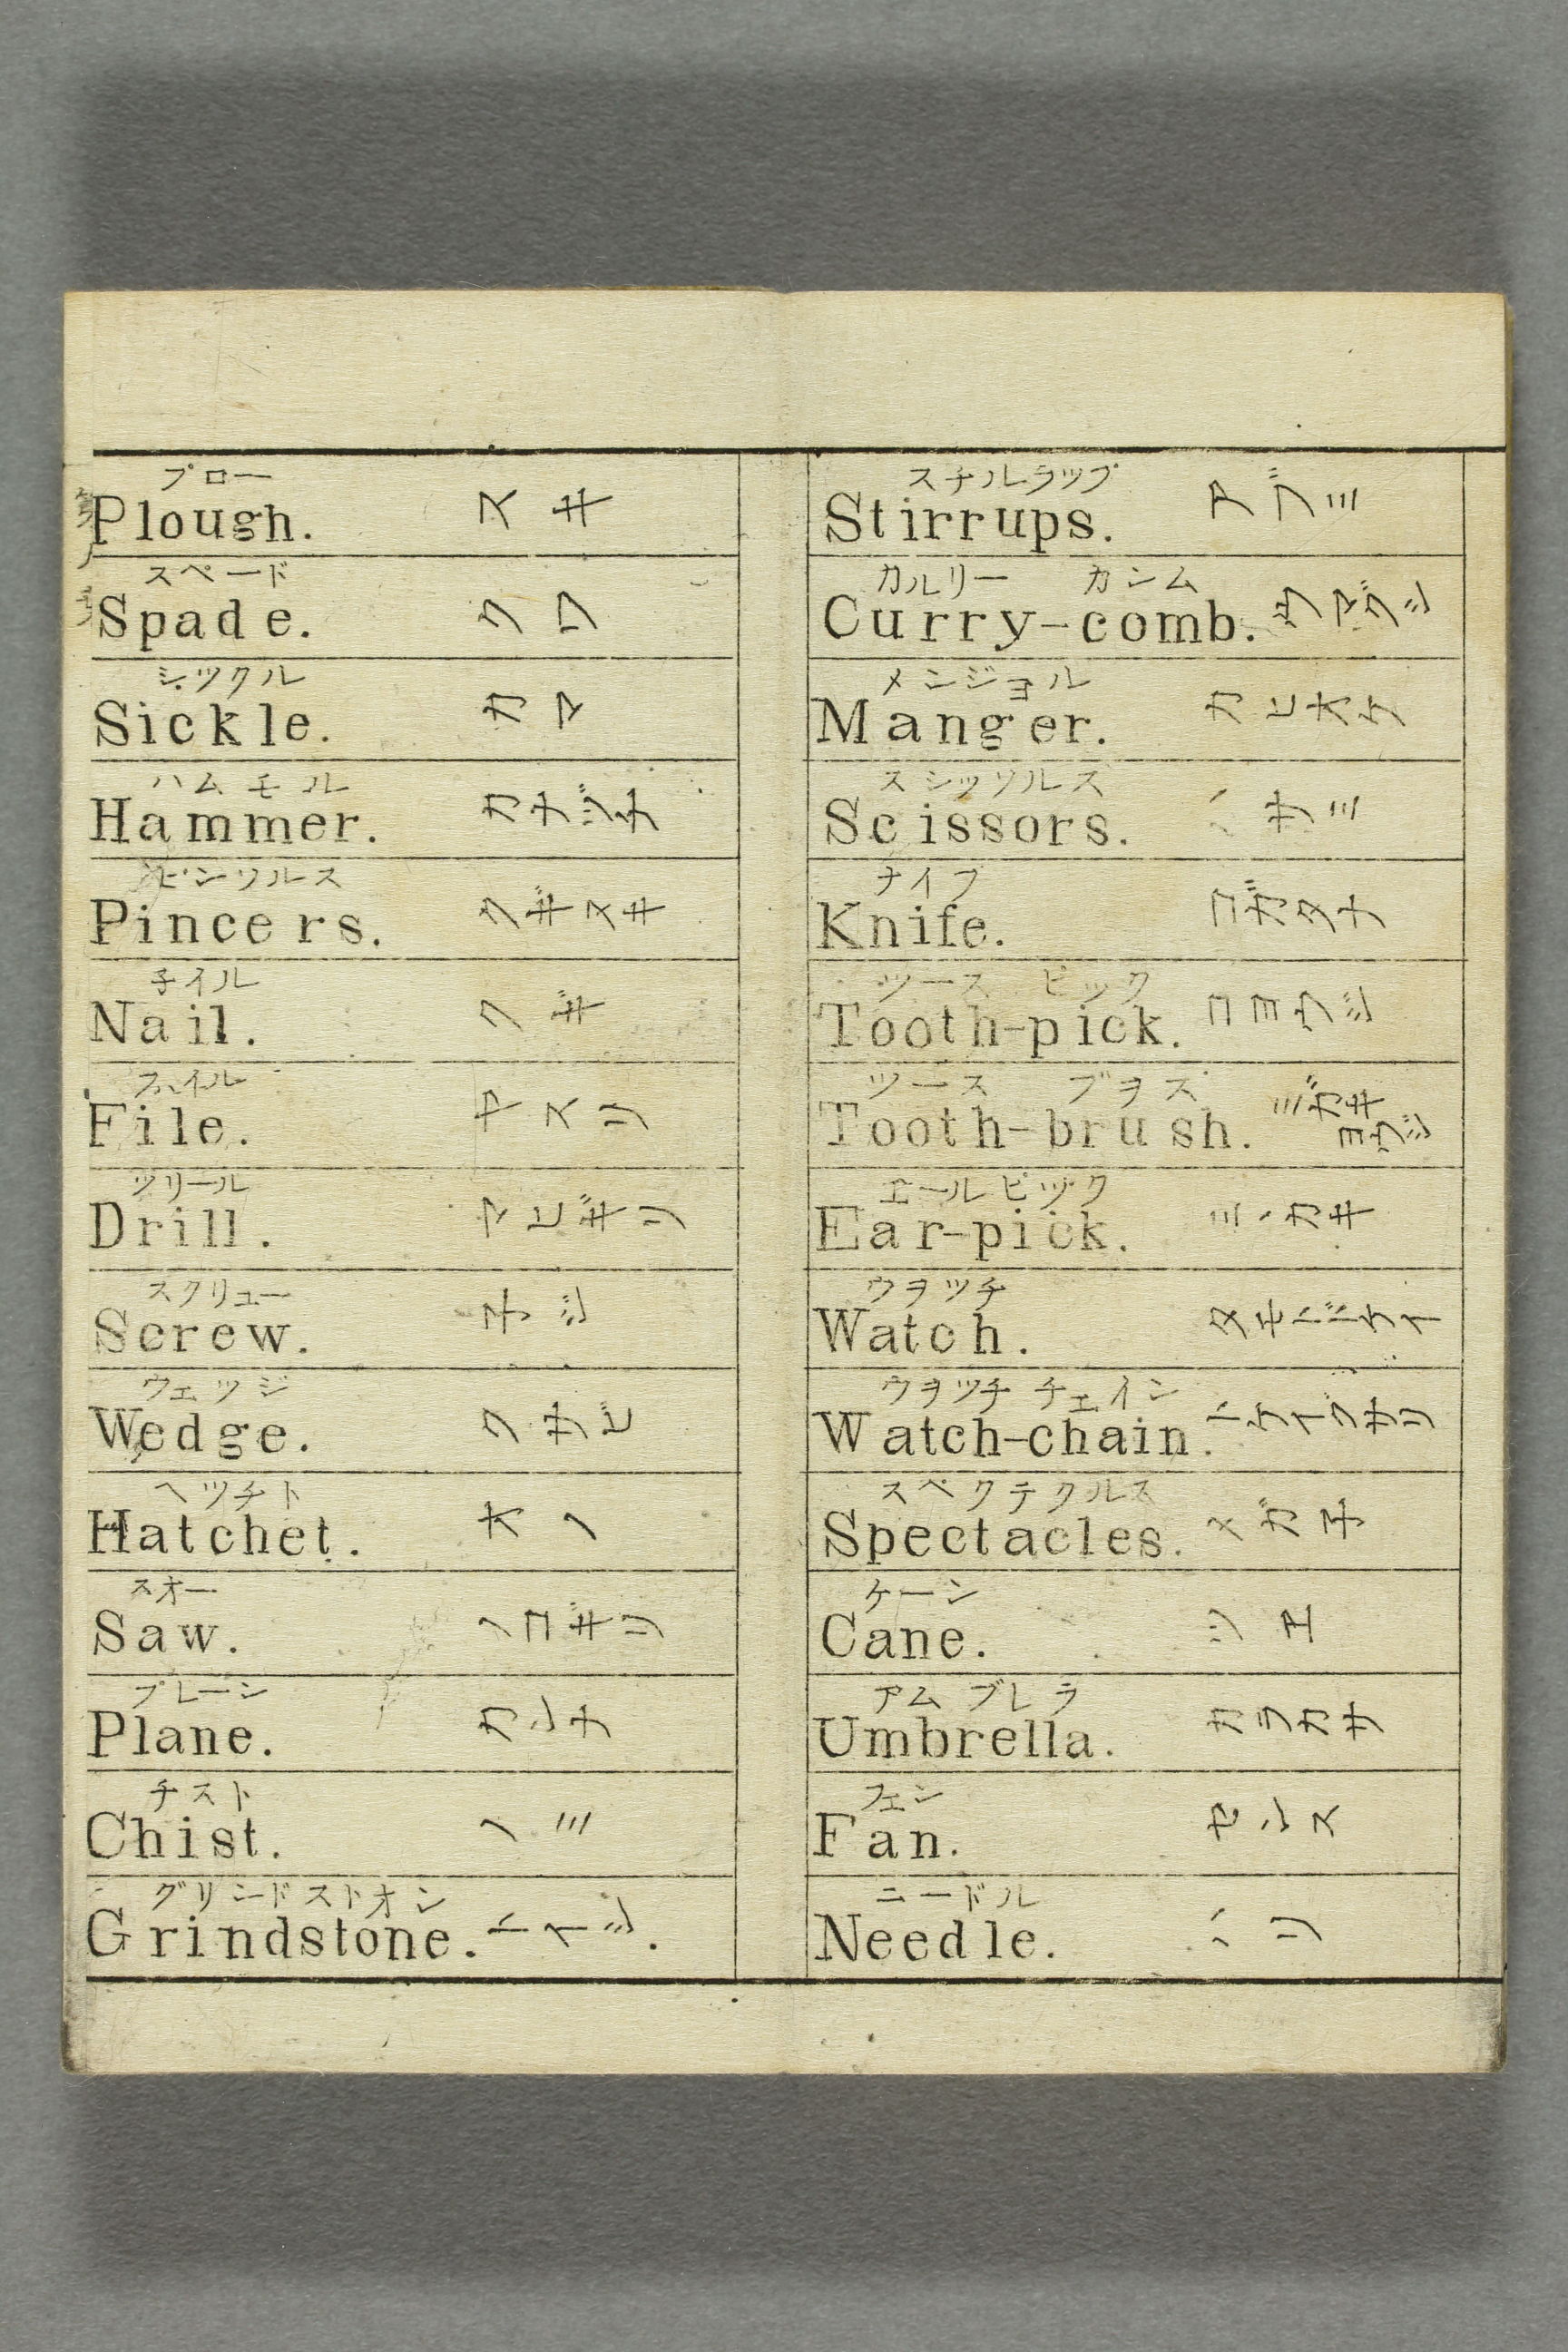 プロー
Plough. スキ
スペード
Spade. クワ
シックル
Sickle. カマ
ハムモル
Hammer. カナヅチ
ピンソルス
Pincers. クギヌキ
子イル
Nail. クギ
ファイル
File. ヤスリ
ツリール
Drill. マヒギリ
スクリュー
Screw. ネジ
ウェッジ
Wedge. クサビ
ヘツチト
Hatchet. オノ
スオー
Saw. ノコギリ
プレーン
Plane. カンナ
チスト
Chist. ノミ
グリンドストオン
Grindstone. トイシ.
スチルラツプ
Stirrups. アブミ
カルリー カンム
Curry-comb. ウマグシ
メンジョル
Manger. カヒオケ
スシッソルス
Scissors. ハサミ
ナイフ
Knife. コガタナ
ツース ピック
Tooth-pick. コヨウジ
ツース ブヲス
Tooth-brush. ミガキ
ヨウジ
エールピック
Ear-pick. ミヽカキ
ウヲツチ
Watch. タモトドケイ
ウヲツチ チェイン
Watch-chain. トケイグサリ
スペクテクルス
Spectacles. メガネ
ケーン
Cane. ツエ
アムブレラ
Umbrella. カラカサ
フェン
Fan. センス
ニードル
Needle. ハリ